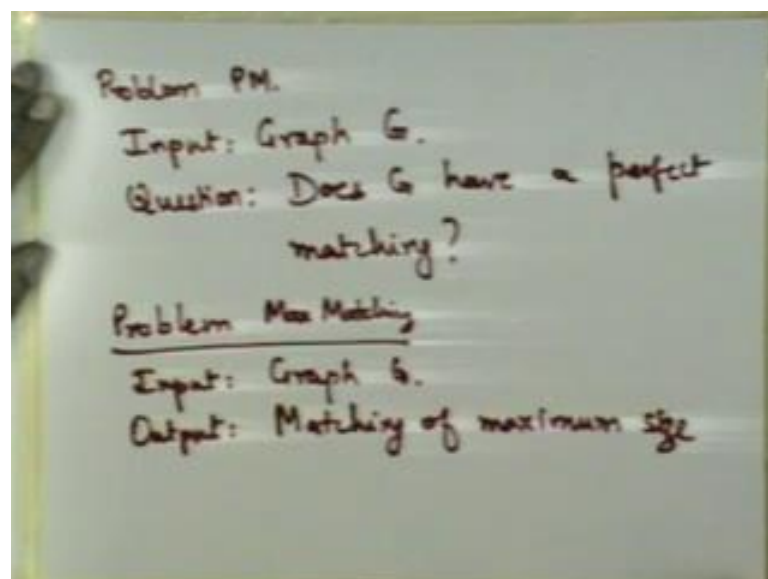 Problem PM.
Input: Graph G.
Question: Does G have a perfect
matching?
Problem Max Matching
Input: Graph G.
Output: Matching of maximum size